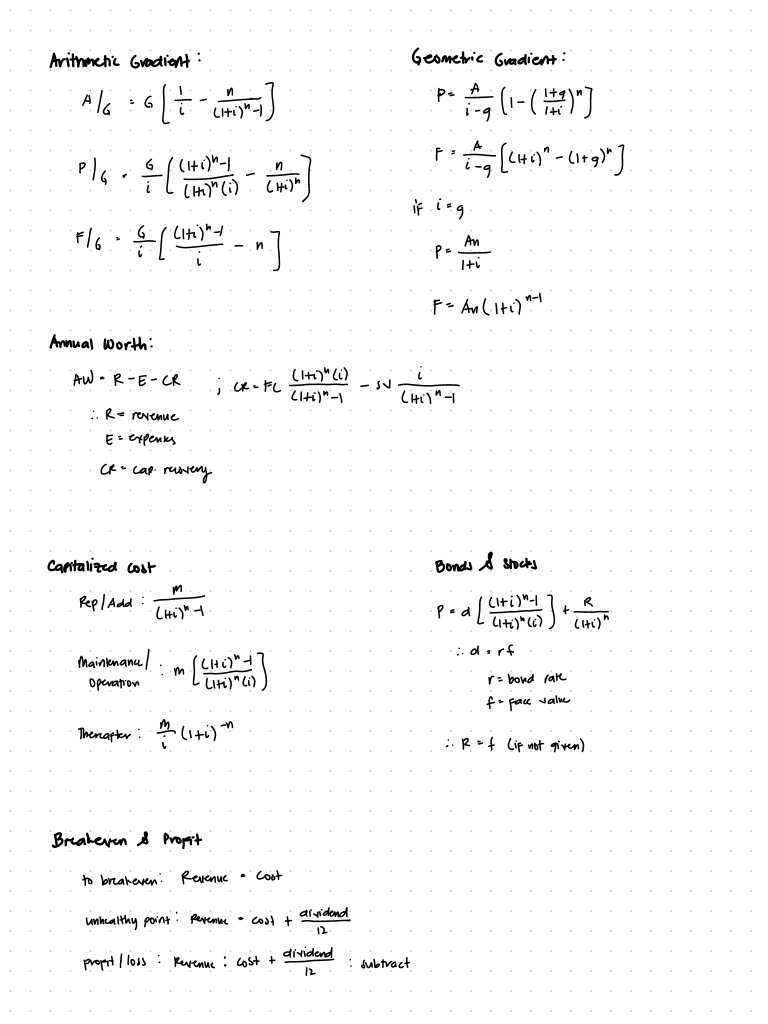 Arithmetic Gradient:
A/G = G [ 1/i - n/((1+i)^n-1) ]
P/G = G/i [ ((1+i)^n-1)/((1+i)^n(i)) - n/(1+i)^n ]
F/G = G/i [ ((1+i)^n-1)/i - n ]
Geometric Gradient:
P = A/(i-g) (1-((1+g)/(1+i))^n]
F = A/(i-g) [(1+i)^n - (1+g)^n]
if i = g
P = An/(1+i)
F = An(1+i)^(n-1)
Annual Worth:
AW = R - E - CR ; CR = FC ((1+i)^n(i))/((1+i)^n-1) - SV i/((1+i)^n-1)
∴ R = revenue
E = expenses
CR = cap. recovery
Capitalized Cost
Rep/Add : m/((1+i)^n-1)
Maintenance/
Operation : m [ ((1+i)^n-1)/((1+i)^n(i)) ]
Thereafter : m/i (1+i)^-n
Bonds & Stocks
P = d [ ((1+i)^n-1)/((1+i)^n(i)) ] + R/(1+i)^n
∴ d = rf
r = bond rate
f = face value
∴ R = f (if not given)
Breakeven & Profit
to breakeven: Revenue = Cost
unhealthy point: Revenue = cost + dividend/12
profit/loss : Revenue : cost + dividend/12 : subtract